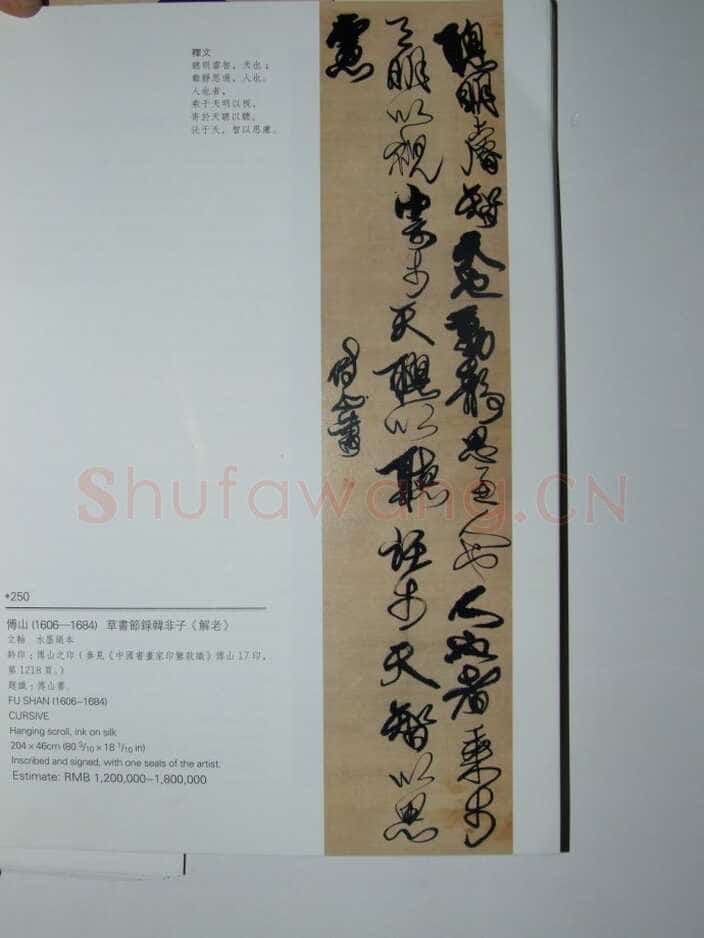 釋文
聰明睿智，天也；
動靜思適，人也。
人也者，
乘于天明以視，
寄於天聰以聽，
託于天，智以思慮。
聰明睿智天也動靜思適人也人也者乘於
天明以視寄於天聰以聽託於天智以思
慮
傅山書
Shufawang.CN
+250
傅山 (1606—1684) 草書節錄韓非子《解老》
立軸 水墨綾本
鈐印：傅山之印（參見《中國書畫家印鑒款識》傅山17印，
第1218頁。）
題識：傅山書。
FU SHAN (1606-1684)
CURSIVE
Hanging scroll, ink on silk
204 × 46cm (80 3/10 × 18 1/10 in)
Inscribed and signed, with one seals of the artist.
Estimate: RMB 1,200,000—1,800,000